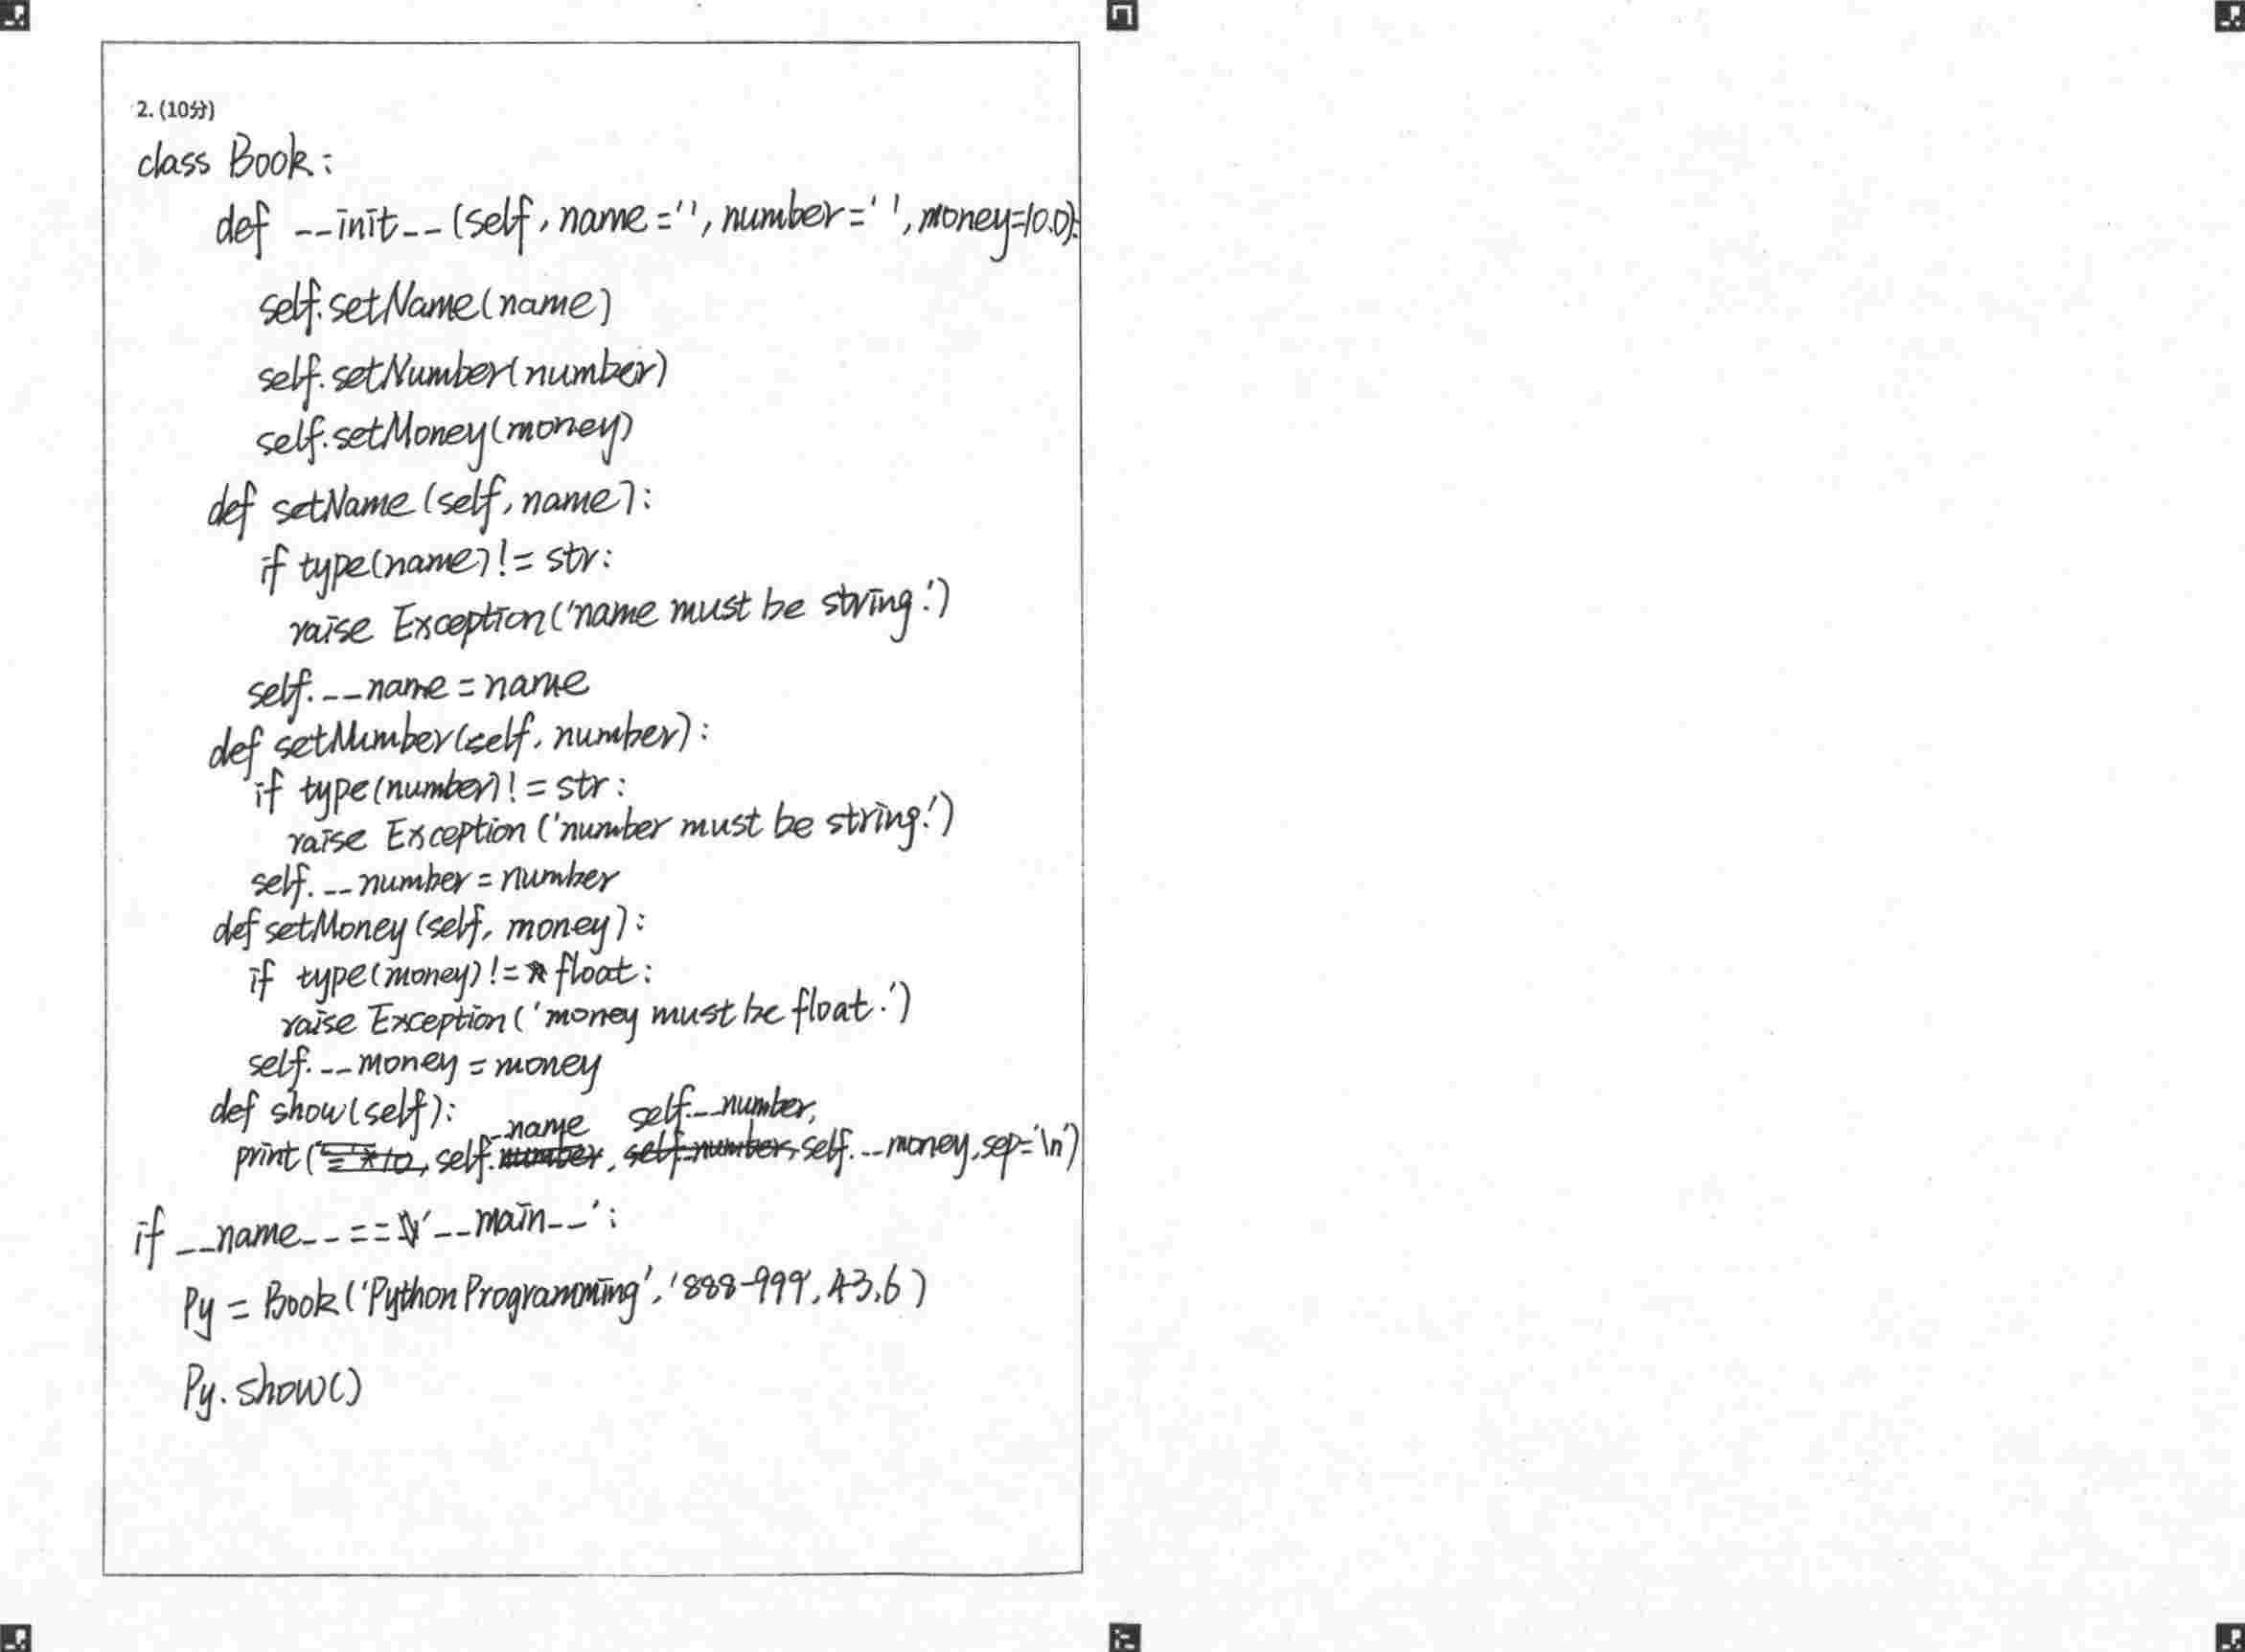 2. (10分)
class Book:
def __init__(self, name='', number='', money=10.0):
self.setName(name)
self.setNumber(number)
self.setMoney(money)
def setName(self, name):
if type(name)!= str:
raise Exception('name must be string.')
self.__name = name
def setNumber(self, number):
if type(number)!= str:
raise Exception('number must be string.')
self.__number = number
def setMoney(self, money):
if type(money)!= float:
raise Exception('money must be float.')
self.__money = money
def show(self):
print(self.__name, self.__number, self.__money, sep='\n')
if __name__ == '__main__':
Py = Book('Python Programming', '888-999', 43.6)
Py.show()